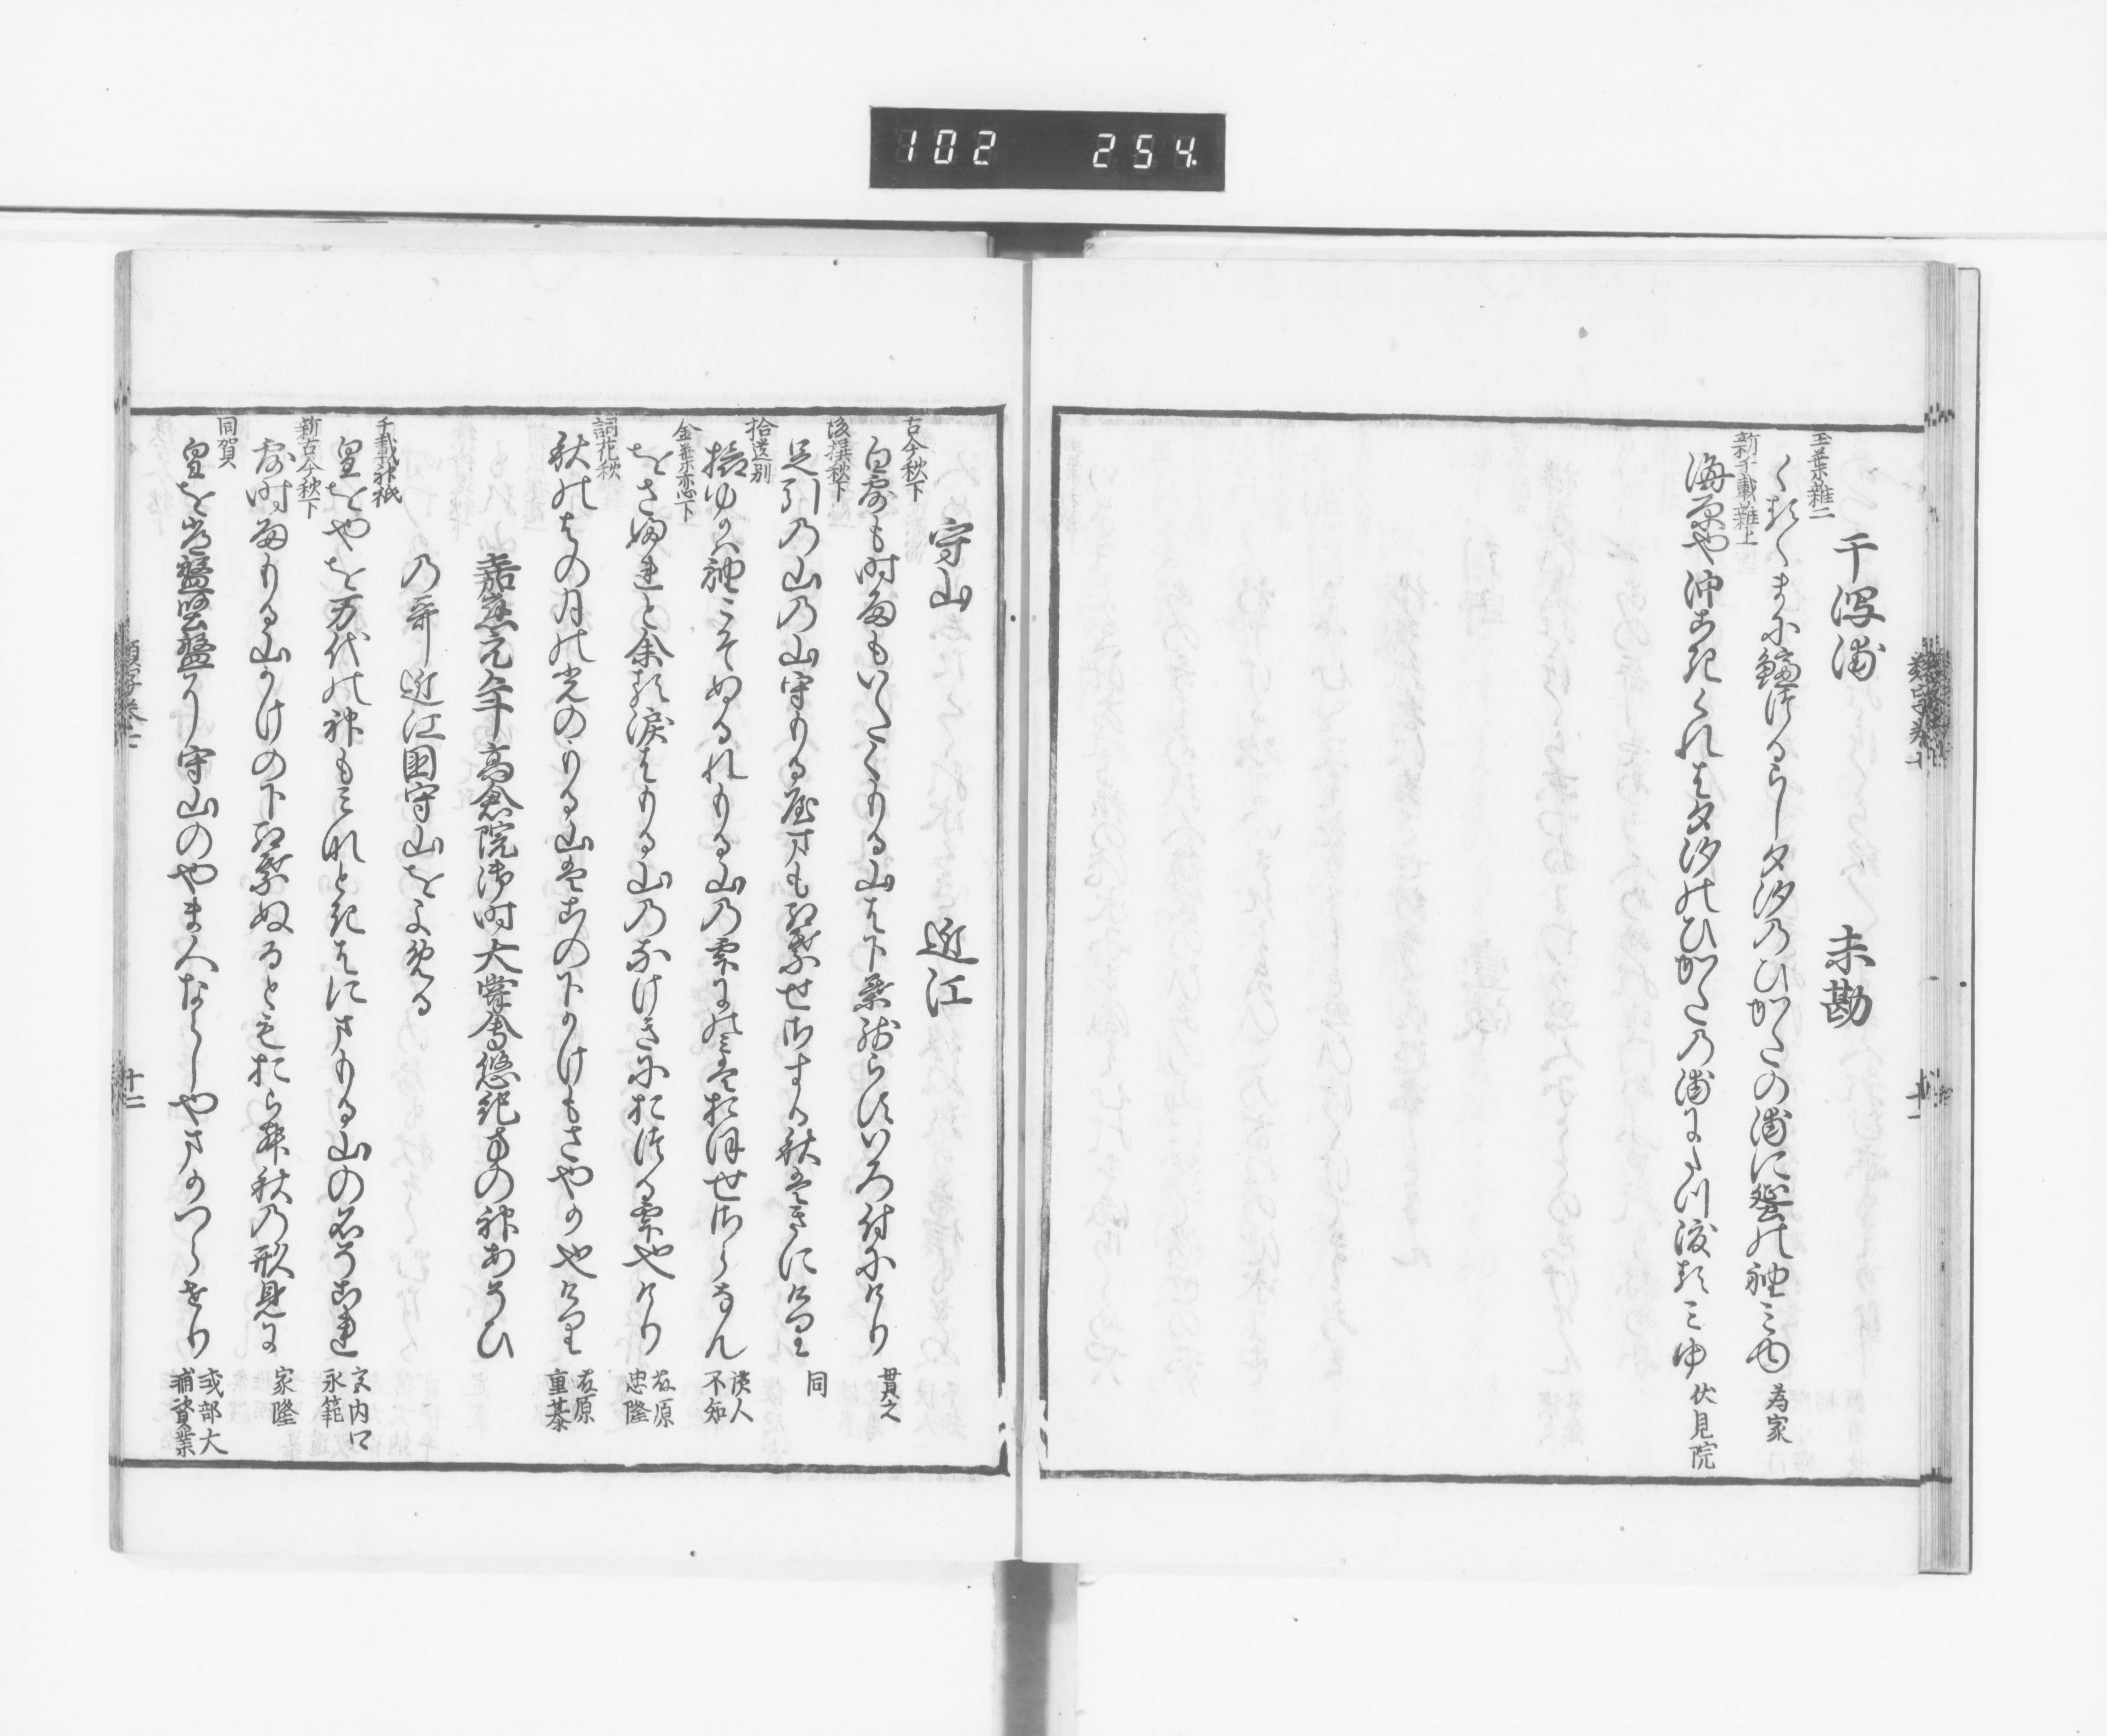 102 254
干潟浦 未勘
玉葉雑二
くるゝまに鱸つるらし夕汐のひかたの浦に蜑の袖みゆ 為家
新千載雑上
海原や沖こきくれは夕汐のひかたの浦にたつ渡るみゆ 伏見院
守山 近江
古今秋下
白露も時雨もいたくもる山は下葉残らすいろ付にけり 貫之
後撰秋下
足引の山の山守もる山も紅葉せさする秋はきにけり 同
拾遺別
旅ゆかは袖こそぬるれもる山の雫にのみはおほせさらなん 読人不知
金葉恋下
をさふれと余る涙はもる山のなけきにおつる雫也けり 藤原忠隆
詞花秋
秋のよの月の光のもる山はこの下かけもさやか也けり 藤原重基
嘉應元年高倉院御時大嘗會悠紀方の神あそひ
の哥近江国守山をよめる
千載神祇
皇をやを万代の神もみなときはにまもる山の名そこれ 宮内口永範
新古今秋下
露時雨もる山かけの下紅葉ぬるとも折ん秋の形見に 家隆
同賀
皇を常盤堅盤にし守山のやま人ならしやまかつらせり 式部大輔資業
類字巻七
十二